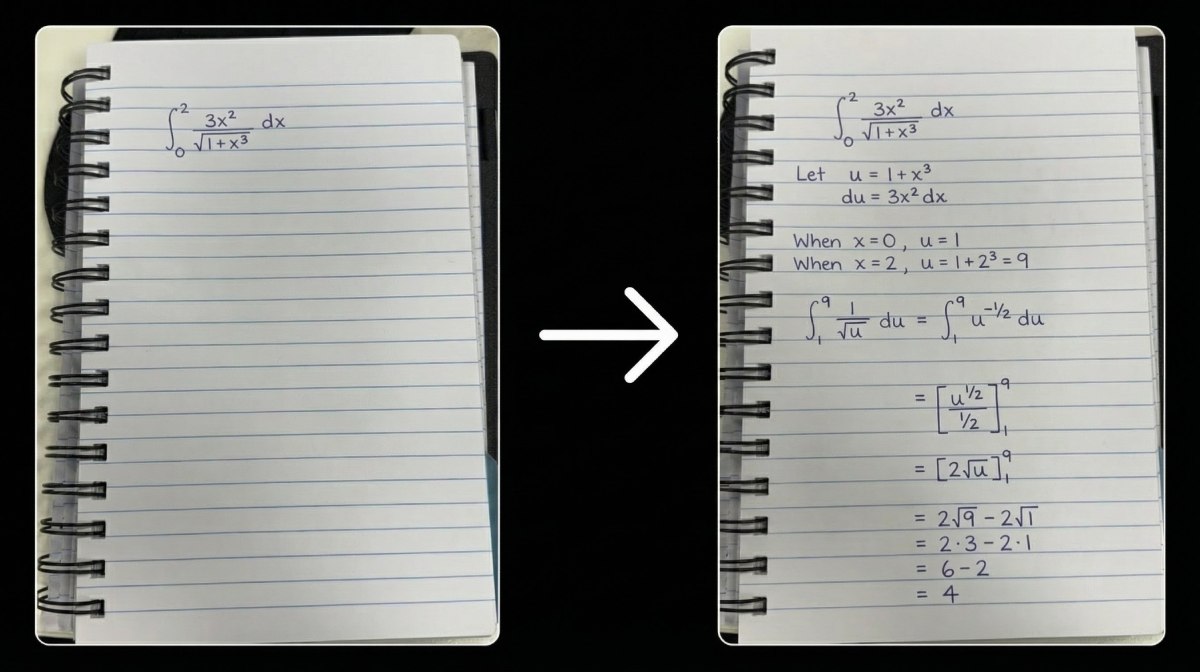 ∫₀² 3x²/√(1+x³) dx
∫₀² 3x²/√(1+x³) dx
Let u = 1+x³
du = 3x² dx
When x=0, u=1
When x=2, u=1+2³=9
∫₁⁹ 1/√u du = ∫₁⁹ u^(-1/2) du
= [u^(1/2)/(1/2)]₁⁹
= [2√u]₁⁹
= 2√9 − 2√1
= 2·3 − 2·1
= 6 − 2
= 4